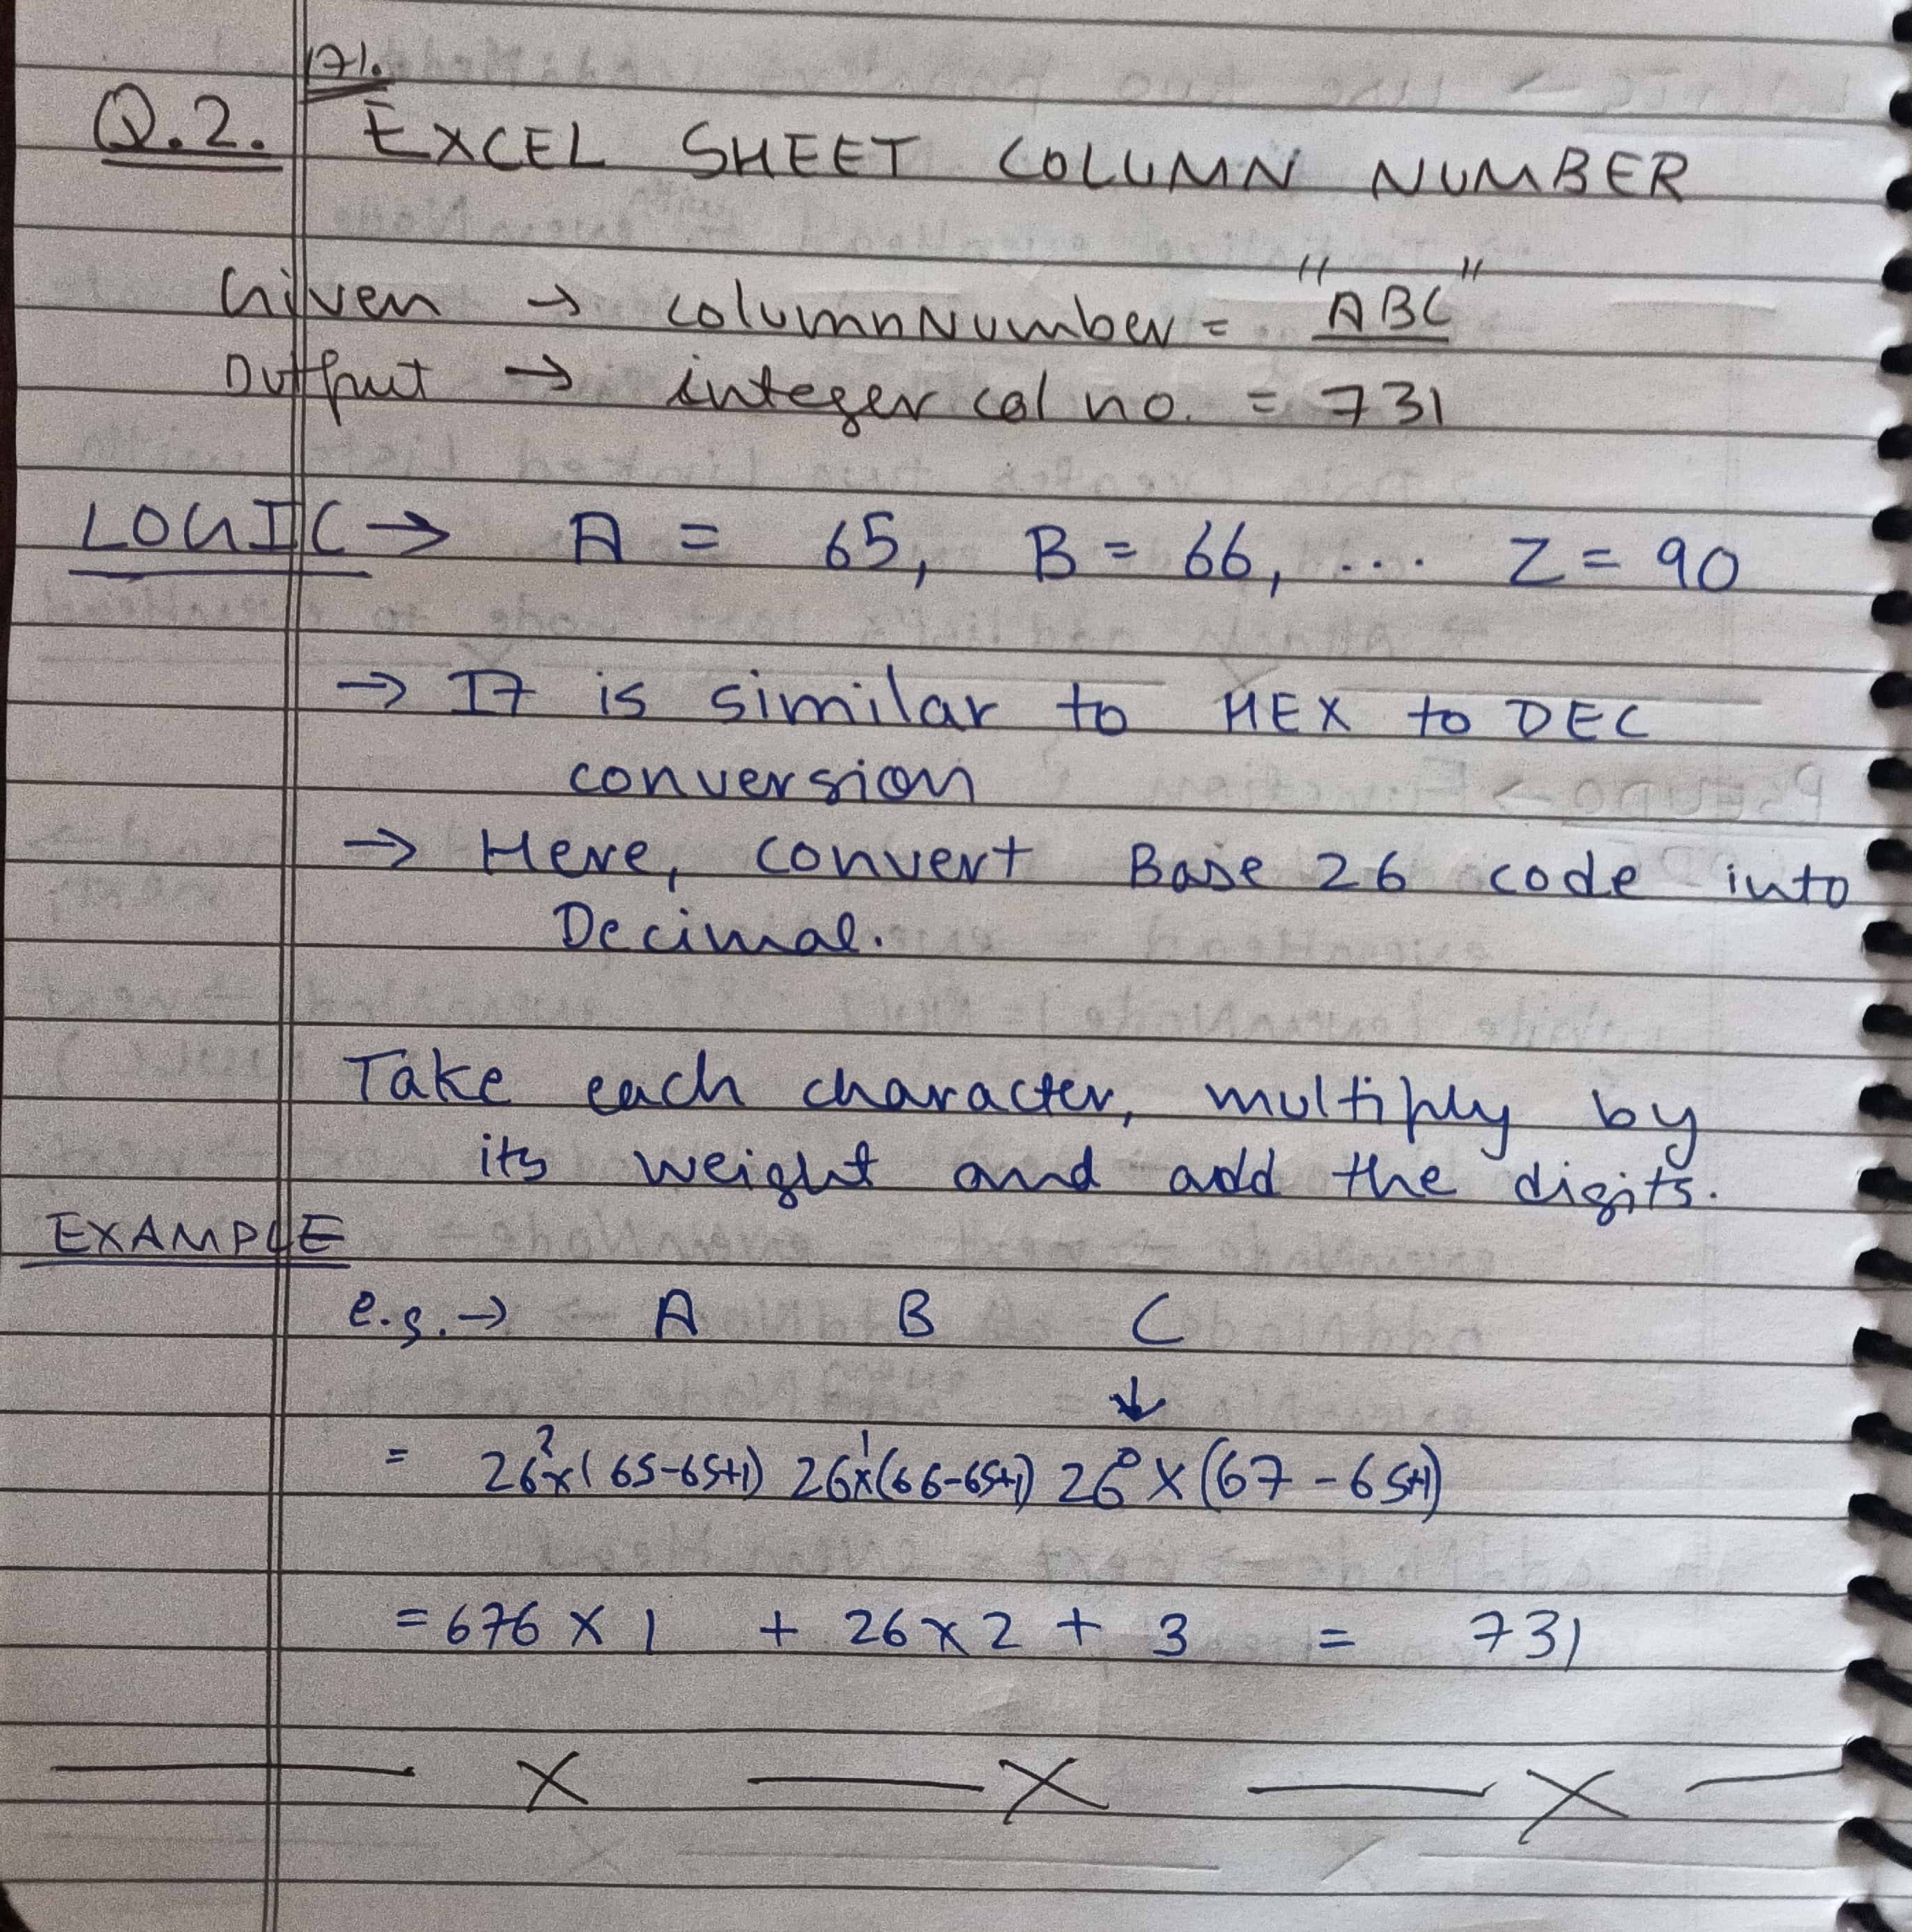 171.
Q.2. EXCEL SHEET COLUMN NUMBER
Given → columnNumber = "ABC"
Output → integer col no. = 731
LOGIC → A = 65, B = 66, ... Z = 90
→ It is similar to HEX to DEC
conversion
→ Here, convert Base 26 code into
Decimal.
Take each character, multiply by
its weight and add the digits.
EXAMPLE
e.g. → A B C
↓
= 26² x (65-65+1) 26¹ x (66-65+1) 26⁰ x (67-65+1)
= 676 x 1 + 26 x 2 + 3 = 731